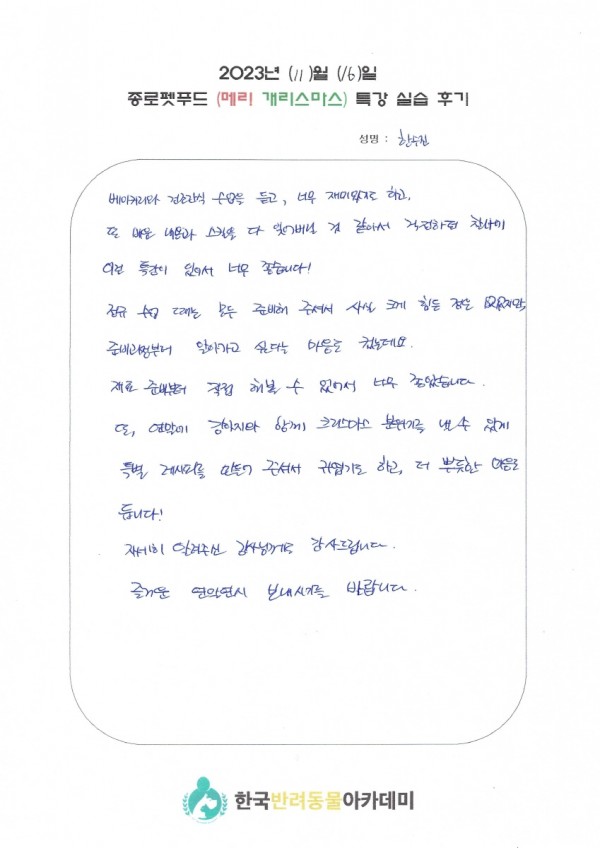 2023년 (11)월 (16)일
종로펫푸드 (메리 개리스마스) 특강 실습 후기
성명 : 한수진
베이커리와 건조간식 수업을 듣고, 너무 재미있기도 하고,
또 배운 내용과 스킬을 다 잊어버릴 것 같아서 걱정하던 찰나에
이런 특강이 있어서 너무 좋습니다!
정규 수업 때는 모두 준비해 주셔서 사실 크게 힘든 점은 없었지만,
준비과정부터 알아가고 싶다는 마음도 컸는데요.
재료 준비부터 직접 해볼 수 있어서 너무 좋았습니다.
또, 연말에 강아지와 함께 크리스마스 분위기를 낼 수 있게
특별 레시피를 만들어 주셔서 귀엽기도 하고, 더 뿌듯한 마음도
듭니다!
자세히 알려주신 강사님께도 감사드립니다.
즐거운 연말연시 보내시기를 바랍니다.
한국반려동물아카데미